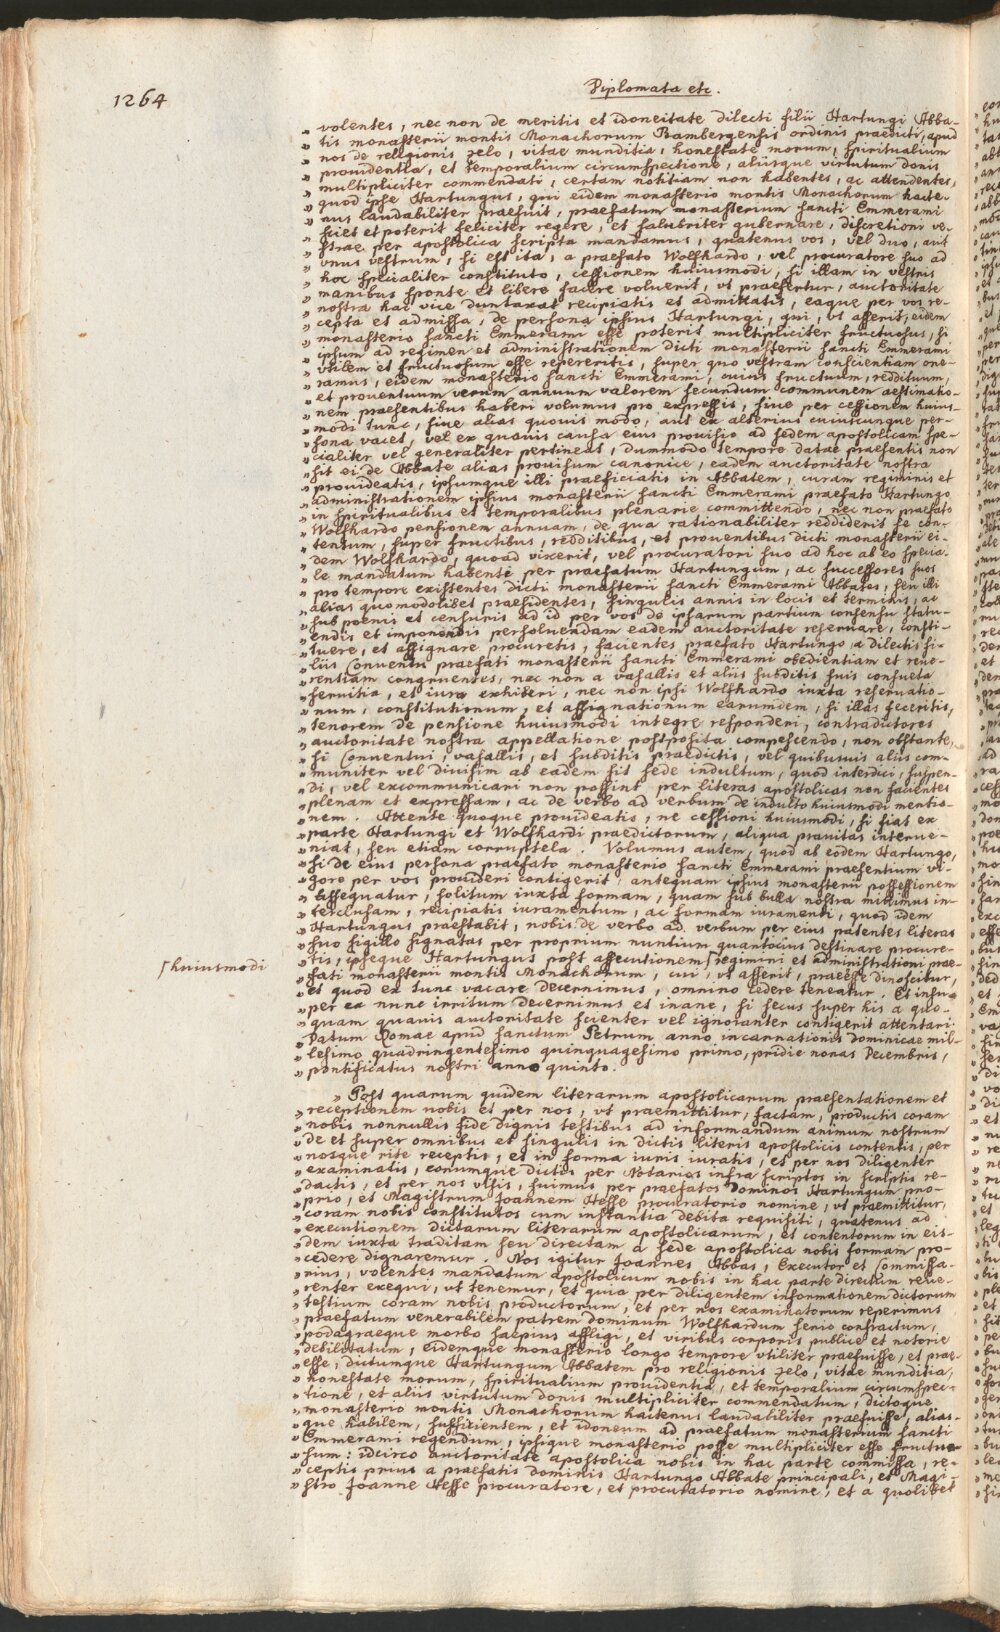 1264
Diplomata etc.
„ volentes, nec non de meritis et idoneitate dilecti filii Hartungi Abba-
„ tis monasterii montis Monachorum Bambergensis ordinis praedicti, apud
„ nos de religionis zelo, vitae munditia, honestate morum, spiritualium
„ prouidentia, et temporalium circumspectione, aliisque virtutum donis
„ multipliciter commendati, certam notitiam non habentes, ac attendentes,
„ quod ipse Hartungus, qui eidem monasterio montis Monachorum hacte-
„ nus laudabiliter praefuit, praefatum monasterium sancti Emmerami
„ sciet et poterit feliciter regere, et salubriter gubernare, discretioni ve-
„ strae per apostolica scripta mandamus, quatenus vos, vel duo, aut
„ vnus vestrum, si est ita, a praefato Wolfhardo, vel procuratore suo ad
„ hoc specialiter constituto, cessionem huiusmodi, si illam in vestris
„ manibus sponte et libere facere voluerit, vt praefertur, auctoritate
„ nostra hac vice duntaxat recipiatis et admittatis, eaque per vos re-
„ cepta et admissa, de persona ipsius Hartungi, qui, vt asserit, eidem
„ monasterio sancti Emmerami esse poterit multipliciter fructuosus, si
„ ipsum ad regimen et administrationem dicti monasterii sancti Emmerami
„ vtilem et fructuosum esse repereritis, super quo vestram conscientiam one-
„ ramus, eidem monasterio sancti Emmerami, cuius fructuum, redituum,
„ et prouentuum verum annuum valorem secundum communem aestimatio-
„ nem praesentibus haberi volumus pro expressis, siue per cessionem huius-
„ modi tunc, siue alias quouis modo, aut ex alterius cuiuscunque per-
„ sona vacet, vel ex quauis causa eius prouisio ad sedem apostolicam spe-
„ cialiter vel generaliter pertineat, dummodo tempore datae praesentis non
„ sit ei de Abbate alias prouisum canonice, eadem auctoritate nostra
„ prouideatis, ipsumque illi praeficiatis in Abbatem, curam regiminis et
„ administrationem ipsius monasterii sancti Emmerami praefato Hartungo
„ in spiritualibus et temporalibus plenarie committendo, nec non praefato
„ Wolfhardo pensionem annuam, de qua rationabiliter reddiderit se con-
„ tentum, super fructibus, redditibus, et prouentibus dicti monasterii ei-
„ dem Wolfhardo, quoad vixerit, vel procuratori suo ad hoc ab eo specia-
„ le mandatum habenti per praefatum Hartungum, ac successores suos
„ pro tempore existentes dicti monasterii sancti Emmerami Abbates, seu illi
„ alias quomodolibet praesidentes, singulis annis in locis et terminis, ac
„ sub poenis et censuris ad id per vos de ipsarum partium consensu statu-
„ endis et imponendis persoluendam eadem auctoritate reseruare, consti-
„ tuere, et assignare procuretis, facientes praefato Hartungo a dilectis fi-
„ liis Conuentu praefati monasterii sancti Emmerami obedientiam et reue-
„ rentiam congruentes, nec non a vasallis et aliis subditis suis consueta
„ seruitia, et iura exhiberi, nec non ipsi Wolfhardo iuxta reseruatio-
„ num, constitutionum, et assignationum earumdem, si illas feceritis,
„ tenorem de pensione huiusmodi integre responderi, contradictores
„ auctoritate nostra appellatione postposita compescendo, non obstante,
„ si Conuentui, vasallis, et subditis praedictis, vel quibusuis aliis com-
„ muniter vel diuisim ab eadem sit sede indultum, quod interdici, suspen-
„ di, vel excommunicari non possint per literas apostolicas non facientes
„ plenam et expressam, ac de verbo ad verbum de indulto huiusmodi mentio-
„ nem. Attente quoque prouideatis, ne cessioni huiusmodi, si fiat ex
„ parte Hartungi et Wolfhardi praedictorum, aliqua prauitas interue-
„ niat, seu etiam corruptela. Volumus autem, quod ab eodem Hartungo,
„ si de eius persona praefato monasterio sancti Emmerami praesentium vi-
„ gore per vos prouideri contigerit, antequam ipsius monasterii possessionem
„ assequatur, solitum iuxta formam, quam sub bulla nostra mittimus in-
„ terclusam, recipiatis iuramentum, ac formam iuramenti, quod idem
„ Hartungus praestabit, nobis de verbo ad verbum per eius patentes literas
„ suo sigillo signatas per proprium nuntium quantocius destinare procure-
„ tis, ipseque Hartungus post assecutionem ⌈ regimini et administrationi prae-
⌈ huiusmodi
„ fati monasterii montis Monachorum, cui, vt asserit, praeesse dinoscitur,
„ et quod ex tunc vacare decernimus, omnino cedere teneatur. Et insu-
„ per ex nunc irritum decernimus et inane, si secus super his a quo-
„ quam quauis auctoritate scienter vel ignoranter contigerit attentari.
„ Datum Romae apud sanctum Petrum anno incarnationis Dominicae mil-
„ lesimo quadringentesimo quinquagesimo primo, pridie nonas Decembris,
„ pontificatus nostri anno quinto.
„ Post quarum quidem literarum apostolicarum praesentationem et
„ receptionem nobis et per nos, vt praemittitur, factam, productis coram
„ nobis nonnullis fide dignis testibus ad informandum animum nostrum
„ de et super omnibus et singulis in dictis literis apostolicis contentis, per
„ nosque rite receptis, et in forma iuris iuratis, et per nos diligenter
„ examinatis, eorumque dictis per Notarios infra scriptos in scriptis re-
„ dactis, et per nos visis, fuimus per praefatos Dominos Hartungum pro-
„ prio, et Magistrum Joannem Hesse procuratorio nomine, vt praemittitur,
„ coram nobis constitutos cum instantia debita requisiti, quatenus ad
„ executionem dictarum literarum apostolicarum, et contentorum in eis-
„ dem iuxta traditam seu directam a sede apostolica nobis formam pro-
„ cedere dignaremur. Nos igitur Joannes Abbas, Executor et Commissa-
„ rius, volentes mandatum apostolicum nobis in hac parte directum reue-
„ renter exequi, vt tenemur, et quia per diligentem informationem dictorum
„ testium coram nobis productorum, et per nos examinatorum reperimus
„ praefatum venerabilem patrem dominum Wolfhardum senio confractum,
„ podagraeque morbo saepius affligi, et viribus corporis publice et notorie
„ debilitatum, eidemque monasterio longo tempore vtiliter praefuisse, et prae-
„ esse, dictumque Hartungum Abbatem pro religionis zelo, vitae munditia,
„ honestate morum, spiritualium prouidentia, et temporalium circumspec-
„ tione, et aliis virtutum donis multipliciter commendatum, dictoque
„ monasterio montis Monachorum hactenus laudabiliter praefuisse, alias-
„ que habilem, sufficientem, et idoneum ad praefatum monasterium sancti
„ Emmerami regendum, ipsique monasterio posse multipliciter esse fructuo-
„ sum: idcirco auctoritate apostolica nobis in hac parte commissa, re-
„ ceptis prius a praefatis dominis Hartungo Abbate principali, et Magi-
„ stro Joanne Hesse procuratore, et procuratorio nomine, et a quolibet